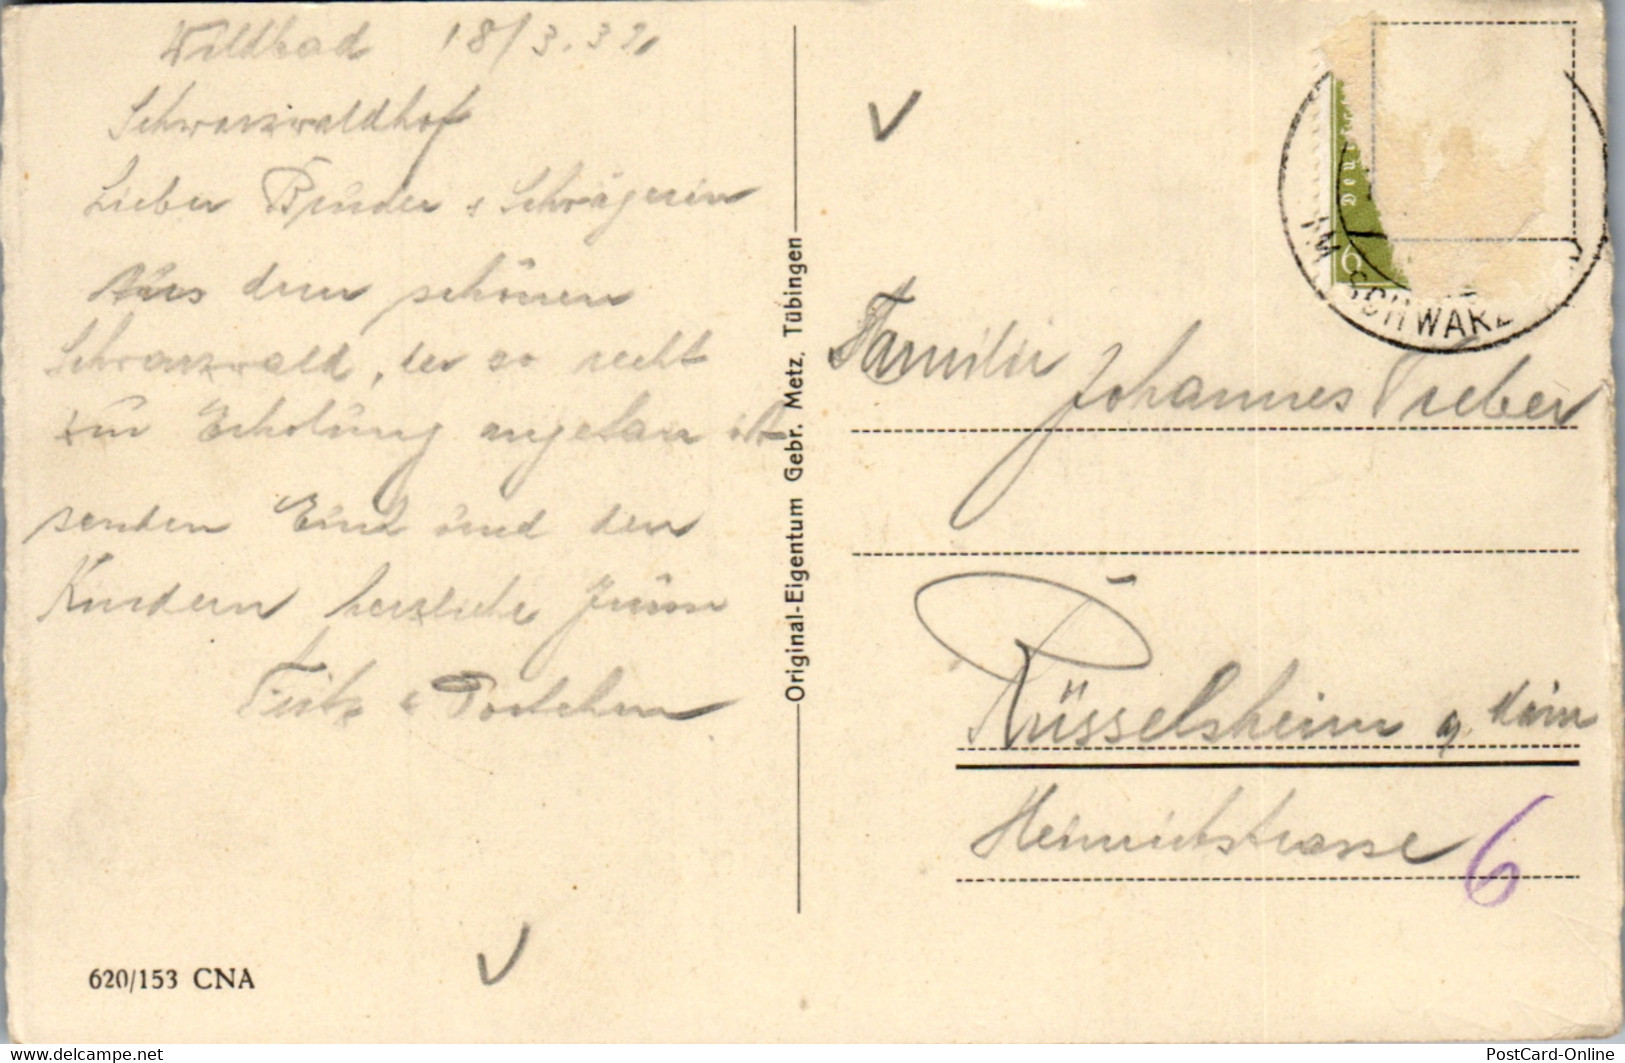 Wildbad 18/3.39
Schwarzwaldhof
Lieber Brüder & Schwägerin
Aus dem schönen
Schwarzwald, der so recht
zur Erholüng angetan ist
senden Eüch ünd den
Kindern herzliche Grüsse
Fritz &
620/153 CNA
Original-Eigentum Gebr. Metz, Tübingen
6
IM SCHWARZ
Familie
Johannes Treber
Rüsselsheim a. Main
Heinrichstrasse 6
delcampe.net
PostCard-Online